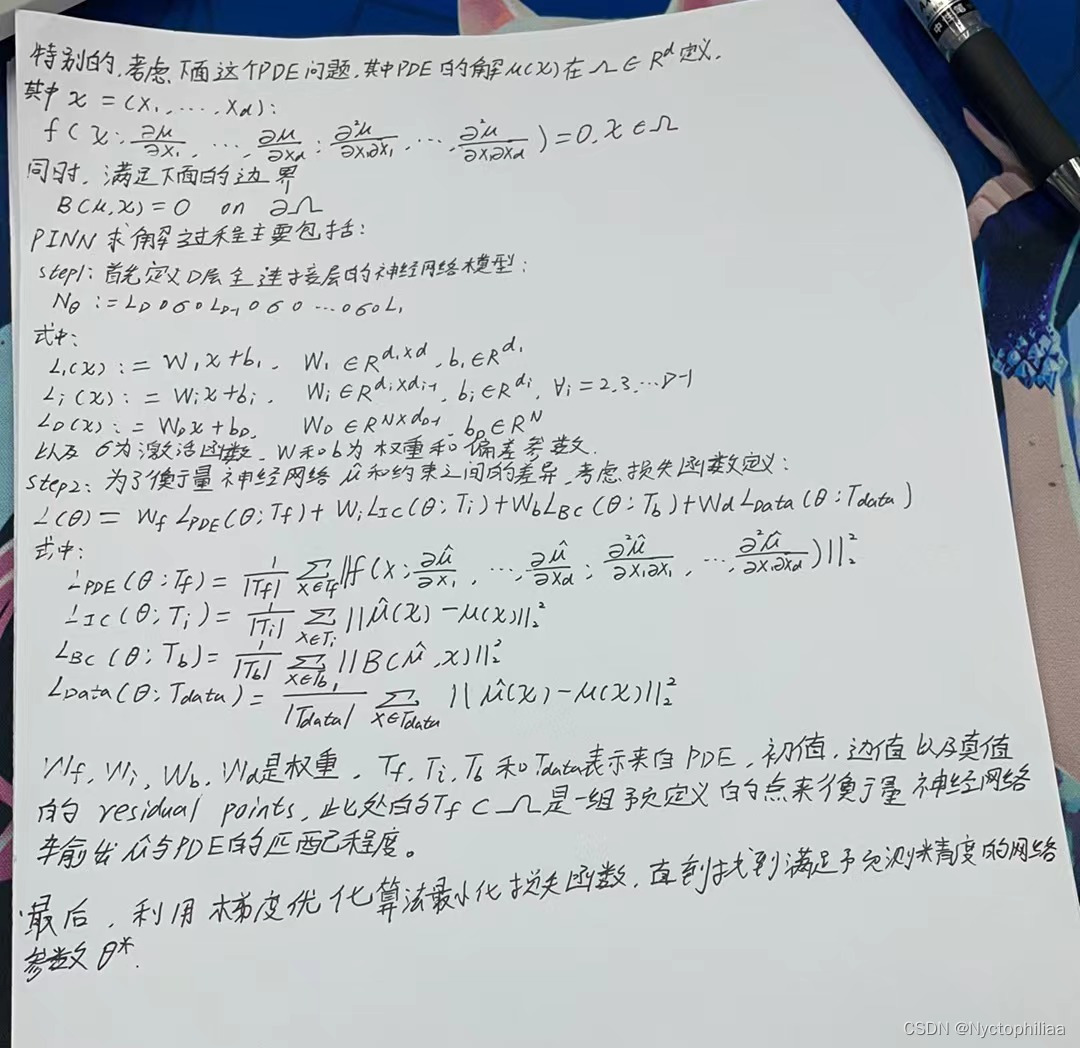 特别的,考虑下面这个PDE问题,其中PDE的解μ(x)在Ω∈R^d定义,
其中 x = (x₁, ..., x_d):
f(x; ∂μ/∂x₁, ..., ∂μ/∂x_d; ∂²μ/∂x₁∂x₁, ..., ∂²μ/∂x₁∂x_d) = 0, x∈Ω
同时,满足下面的边界
B(μ,x)=0 on ∂Ω
PINN求解过程主要包括:
step1:首先定义D层全连接层的神经网络模型:
N_θ := L_D∘σ∘L_{D-1}∘σ∘...∘σ∘L₁
式中:
L₁(x) := W₁x+b₁, W₁∈R^{d₁×d}, b₁∈R^{d₁}
L_i(x) := W_i x+b_i, W_i∈R^{d_i×d_{i-1}}, b_i∈R^{d_i}, ∀i=2,3,...D-1
L_D(x) := W_D x+b_D, W_D∈R^{N×d_{D-1}}, b_D∈R^N
以及 σ为激活函数,W和b为权重和偏差参数.
step2:为了衡量神经网络û和约束之间的差异,考虑损失函数定义:
L(θ) = W_f L_PDE(θ;T_f)+W_i L_IC(θ;T_i)+W_b L_BC(θ;T_b)+W_d L_Data(θ;T_data)
式中:
L_PDE(θ;T_f) = 1/|T_f| Σ_{x∈T_f} ||f(x; ∂û/∂x₁, ..., ∂û/∂x_d; ∂²û/∂x₁∂x₁, ..., ∂²û/∂x₁∂x_d)||₂²
L_IC(θ;T_i) = 1/|T_i| Σ_{x∈T_i} ||û(x)-μ(x)||₂²
L_BC(θ;T_b) = 1/|T_b| Σ_{x∈T_b} ||B(û,x)||₂²
L_Data(θ;T_data) = 1/|T_data| Σ_{x∈T_data} ||û(x)-μ(x)||₂²
W_f, W_i, W_b, W_d是权重,T_f, T_i, T_b和T_data表示来自PDE,初值,边值以及真值
的residual points,此处的T_f⊂Ω是一组预定义的点来衡量神经网络
输出û与PDE的匹配程度。
最后,利用梯度优化算法最小化损失函数,直到找到满足预测精度的网络
参数θ*.
CSDN @Nyctophiliaa